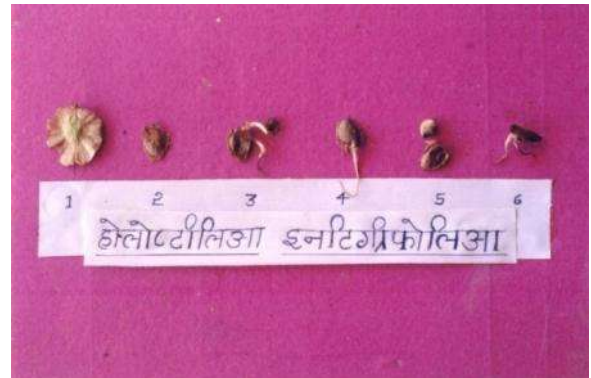 1 2 3 4 5 6
होलोप्टीलिआ इनटिग्रीफोलिआ